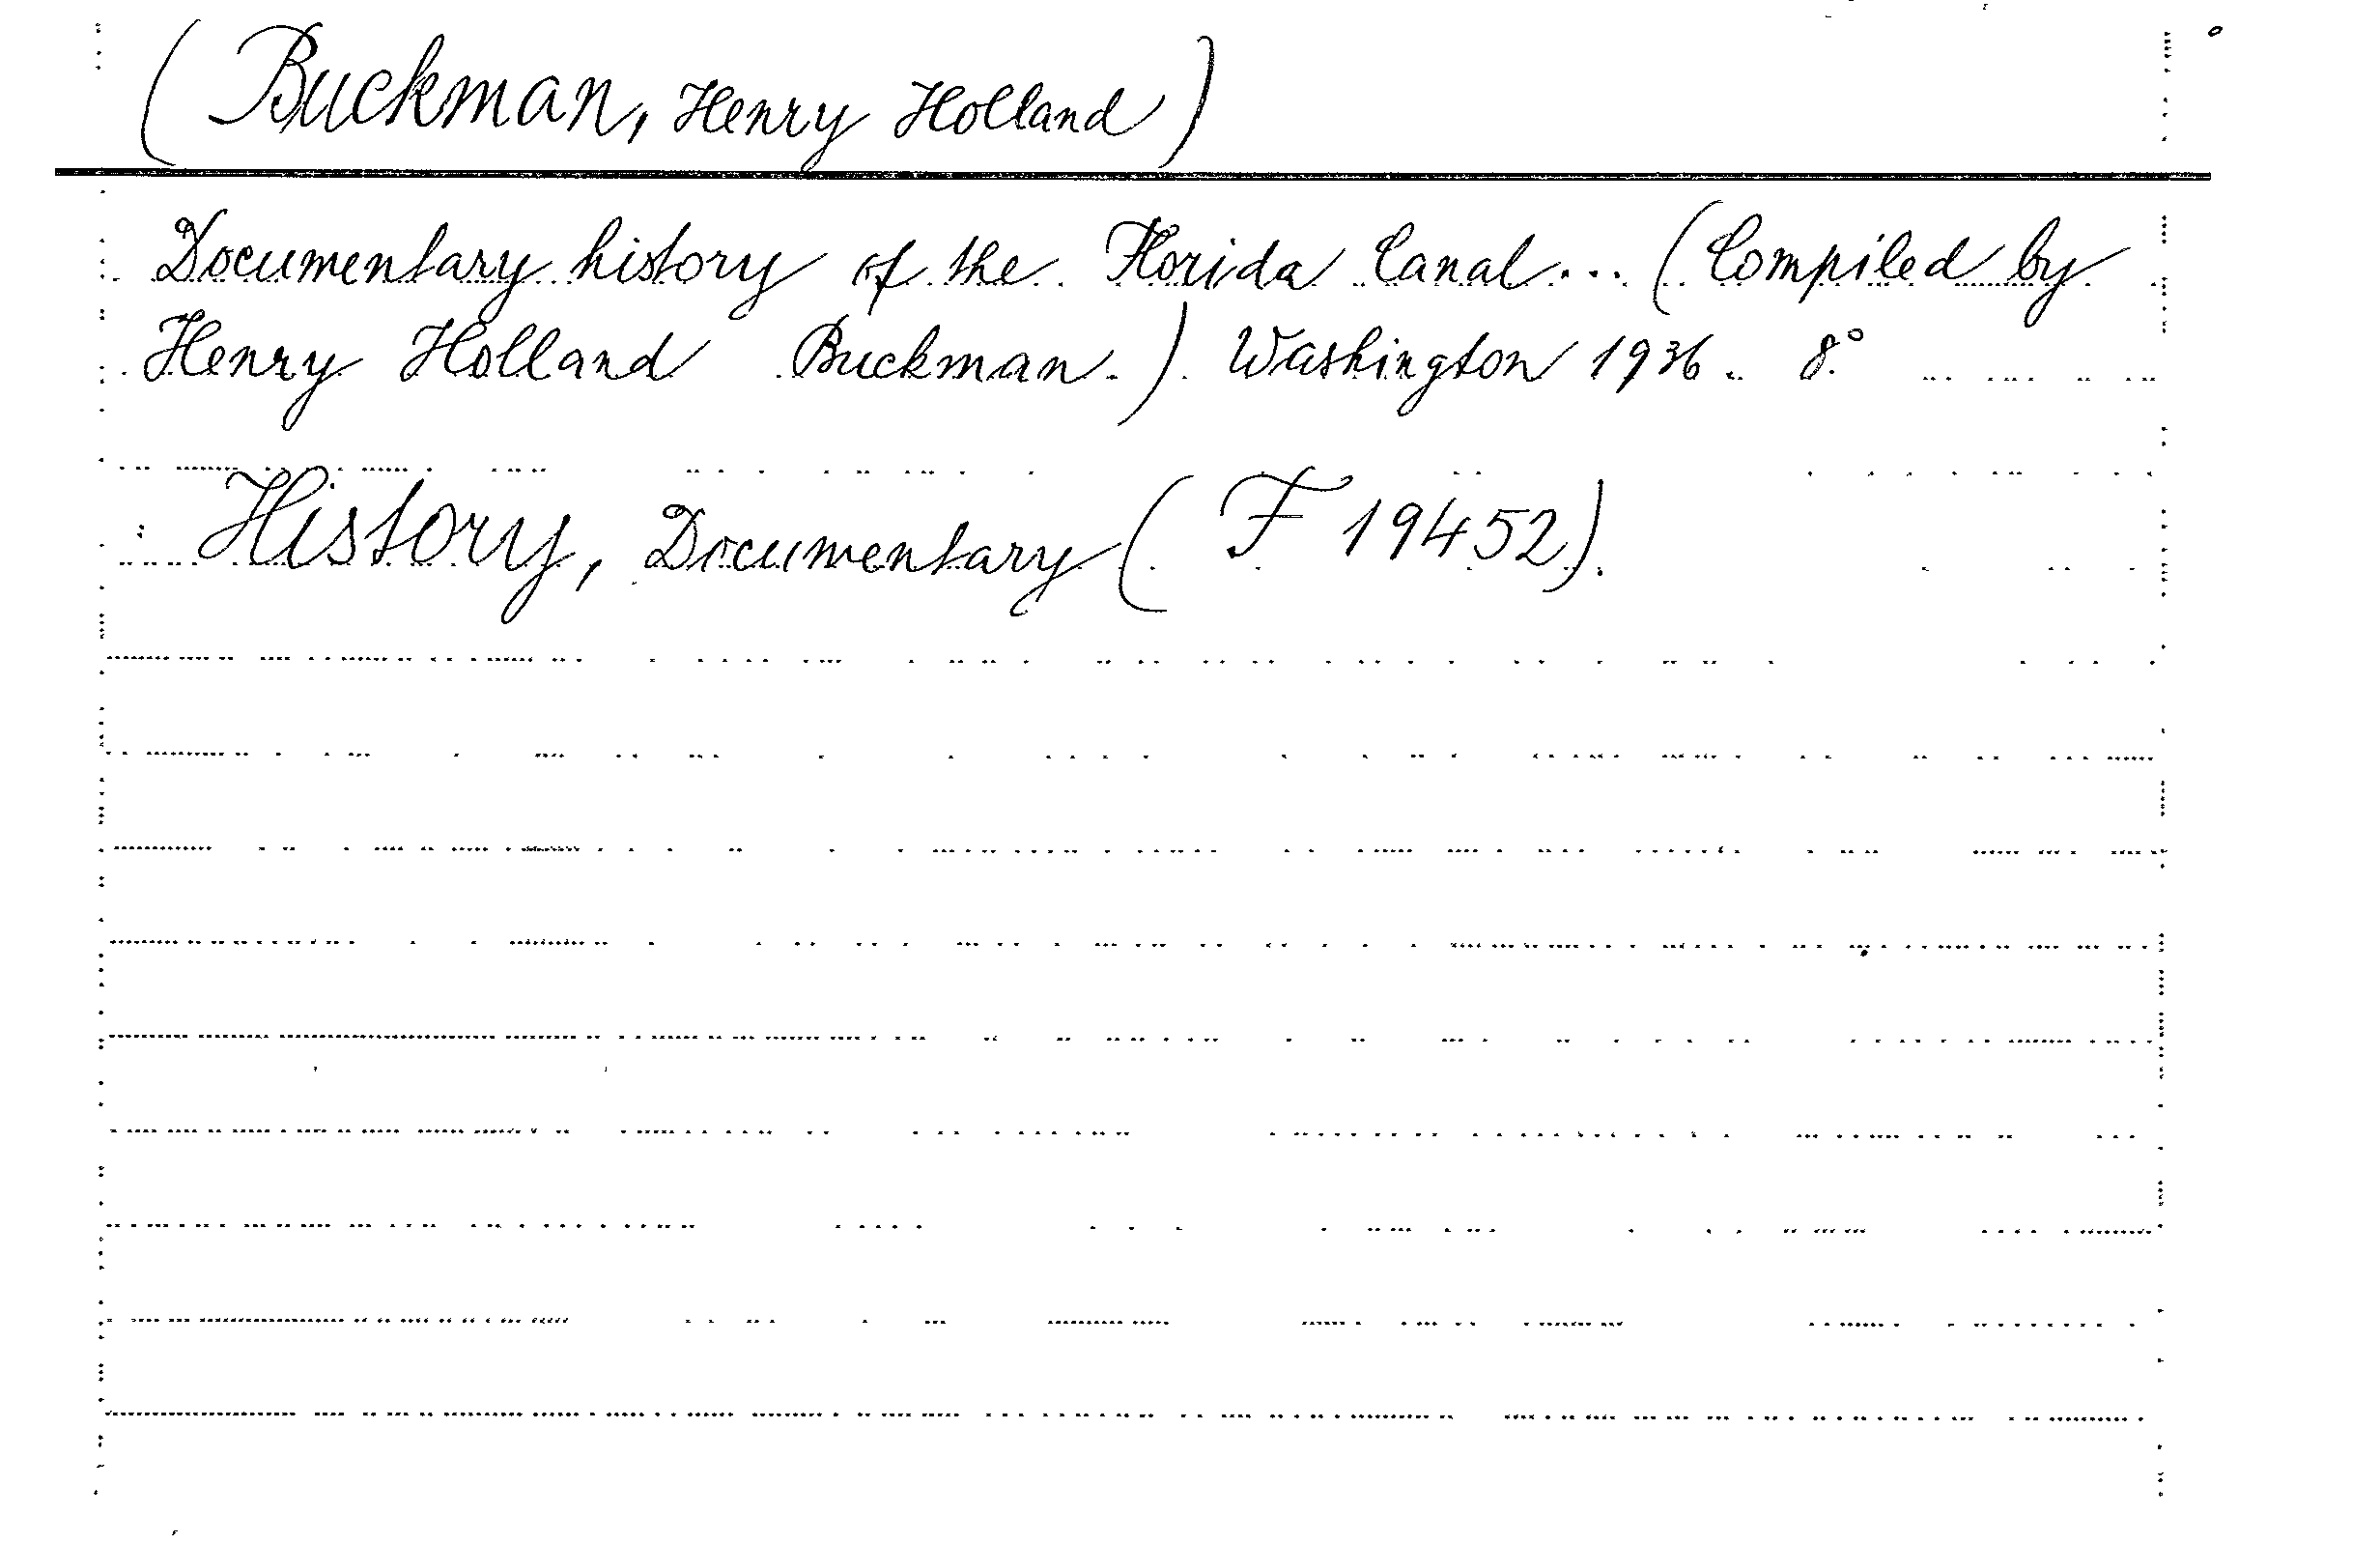 ( Buckman, Henry Holland )
Documentary history of the Florida Canal... (Compiled by
Henry Holland Buckman.) Washington 1936. 8°
History, Documentary ( F 19452).